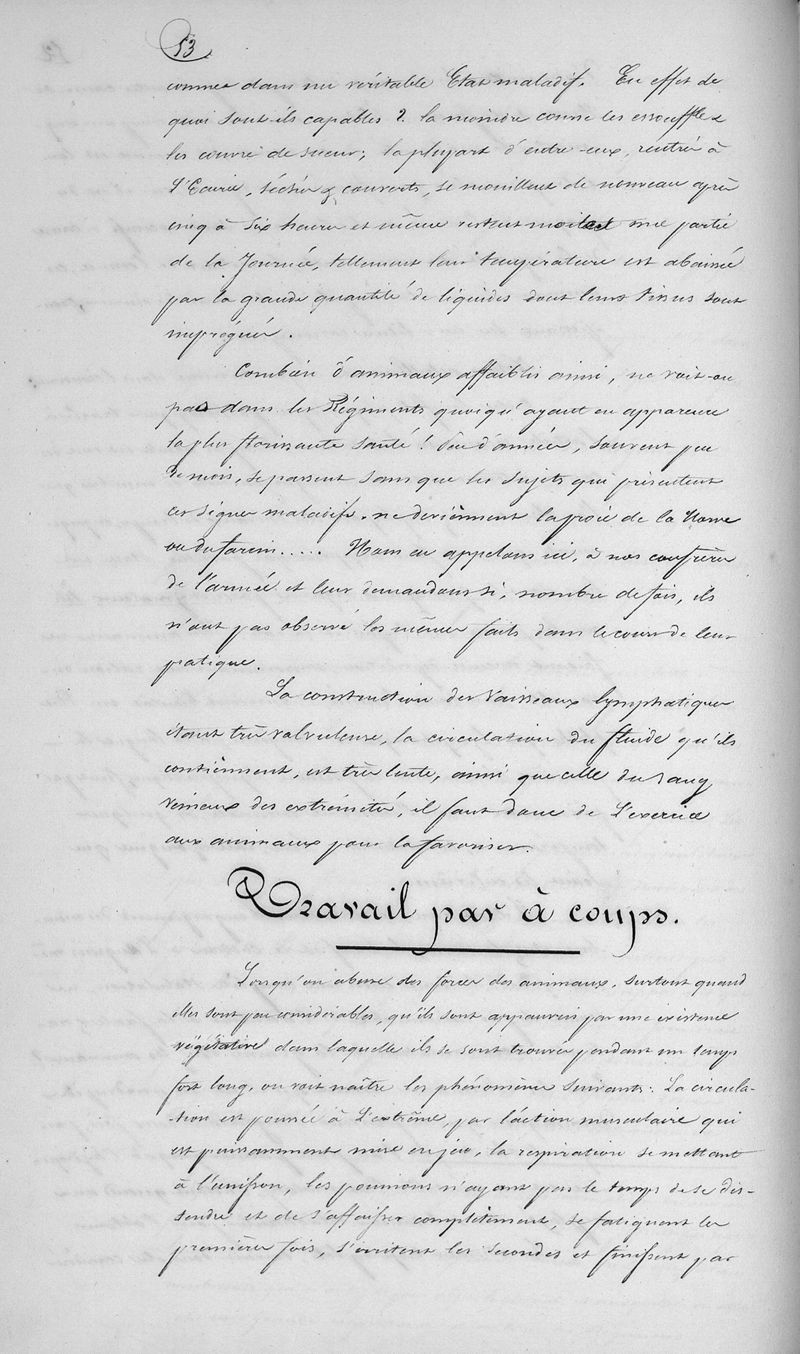 53
comme dans un véritable Etat maladif. En effet de
quoi sont-ils capables ? la moindre course les essouffle &
les couvre de sueur; la plupart d'entre-eux, rentrés à
l'Ecurie, séchés & couverts, se mouillent de nouveau après
cinq à six heures et même restent moites une partie
de la Journée, tellement leur température est abaissée
par la grande quantité de liquides dont leurs tissus sont
imprégnés.
Combien d'animaux affaiblis ainsi, ne voit-on
pas dans les Régiments quoiqu'ayant en apparence
la plus florissante santé ! Peu d'années, souvent peu
de mois, se passent sans que les sujets qui présentent
ces signes maladifs, ne deviènnent la proie de la Morve
ou du farcin..... Nous en appelons ici, à nos confrères
de l'armée et leur demandons si, nombre de fois, ils
n'ont pas observé les mêmes faits dans le cours de leur
pratique.
La construction des Vaisseaux lymphatiques
étant très valvuleuse, la circulation du fluide qu'ils
contiènnent, est très lente, ainsi que celle du sang
veineux des extrémités, il faut donc de l'exercice
aux animaux pour la favoriser.
Travail par à coups.
Lorsqu'on abuse des forces des animaux, surtout quand
elles sont peu considérables, qu'ils sont appauvris par une existence
végétative dans laquelle ils se sont trouvés pendant un temps
fort long, on voit naître les phénomènes suivants: La circula-
tion est poussée à l'extrême, par l'action musculaire qui
est puissamment mise en jeu, la respiration se mettant
à l'unisson, les poumons n'ayant pas le temps de se dis-
tendre et de s'affaisser complètement, se fatiguent les
premières fois, s'irritent les secondes et finissent par